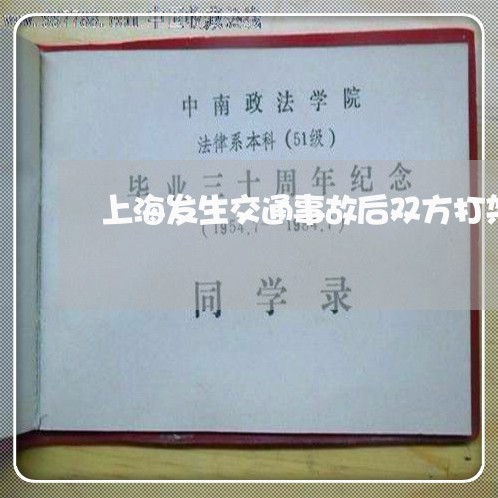 中国收藏热线
中南政法学院
法律系本科(51级)
毕业三十周年纪念
上海发生交通事故后双方打架
(1954.7—1984.7)
同学录